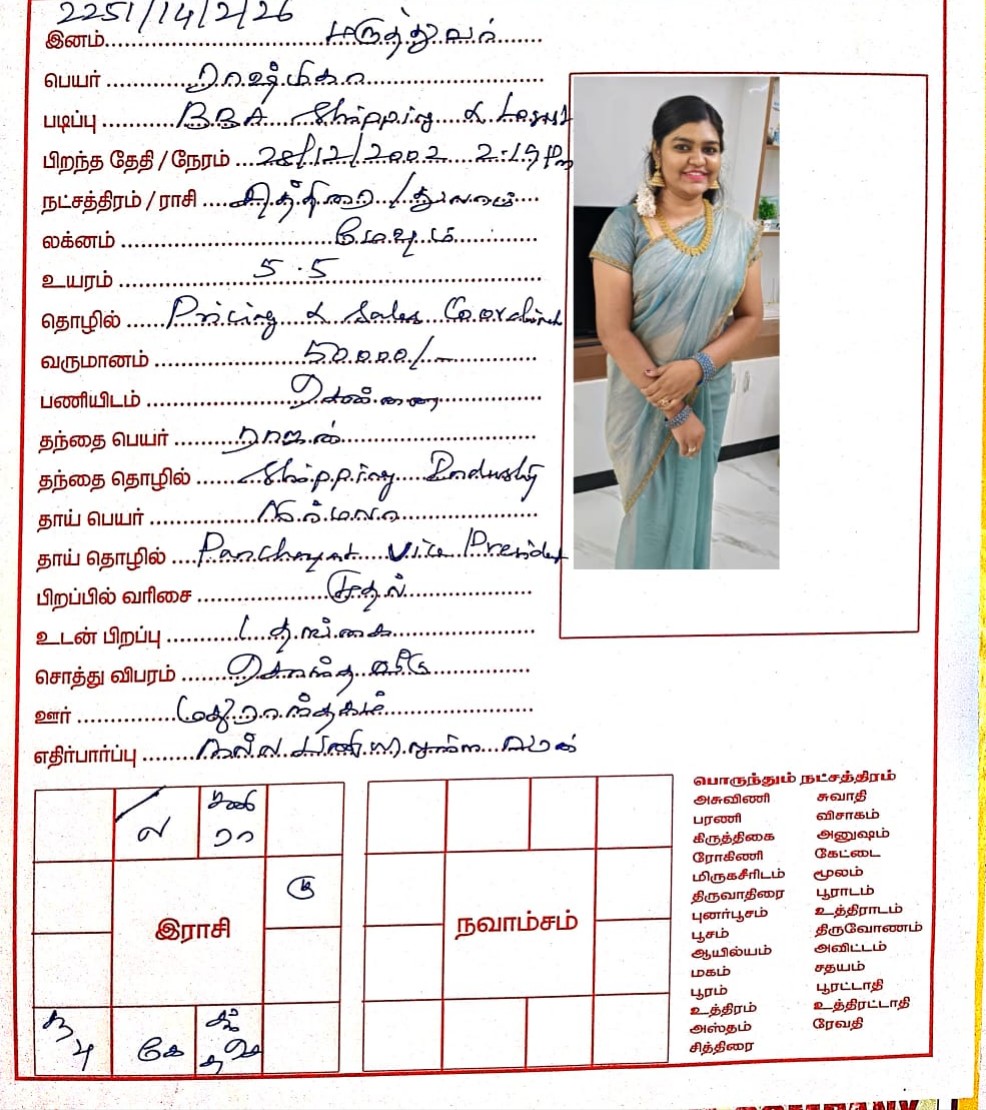 2251/14/2/26
இனம்.................... மருத்துவர்
பெயர் .................... ராஷ்மிகா
படிப்பு .................... BBA Shipping & Logist
பிறந்த தேதி / நேரம் .... 28/12/2002 2.19 Pm
நட்சத்திரம் / ராசி .... சித்திரை / துலாம்
லக்னம் .................... மேஷம்
உயரம் .................... 5.5
தொழில் .................... Pricing & Sales Coordinat
வருமானம் .................... 50000/-
பணியிடம் .................... சென்னை
தந்தை பெயர் .................... ராஜன்
தந்தை தொழில் .................... Shipping Industry
தாய் பெயர் .................... நிர்மலா
தாய் தொழில் .................... Panchayat Vice President
பிறப்பில் வரிசை .................... முதல்
உடன் பிறப்பு .................... 1 தங்கை
சொத்து விபரம் .................... சொந்த வீடு
ஊர் .................... மதுராந்தகம்
எதிர்பார்ப்பு .................... நல்ல பணியிலுள்ள
ல
சனி
ரா
கு
இராசி
கே
நவாம்சம்
பொருந்தும் நட்சத்திரம்
அசுவிணி சுவாதி
பரணி விசாகம்
கிருத்திகை அனுஷம்
ரோகிணி கேட்டை
மிருகசீரிடம் மூலம்
திருவாதிரை பூராடம்
புனர்பூசம் உத்திராடம்
பூசம் திருவோணம்
ஆயில்யம் அவிட்டம்
மகம் சதயம்
பூரம் பூரட்டாதி
உத்திரம் உத்திரட்டாதி
அஸ்தம் ரேவதி
சித்திரை
COMPANY